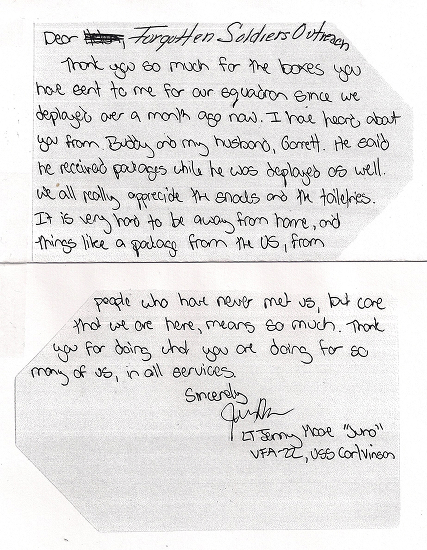 Dear Forgotten Soldiers Outreach
Thank you so much for the boxes you
have sent to me for our squadron since we
deployed over a month ago now. I have heard about
you from Buddy and my husband, Garrett. He said
he received packages while he was deployed as well.
We all really appreciate the snacks and the toiletries.
It is very hard to be away from home, and
things like a package from the US, from
people who have never met us, but care
that we are here, means so much. Thank
you for doing what you are doing for so
many of us, in all services.
Sincerely
LT Jenny Moore "Juno"
VFA-22, USS Carl Vinson